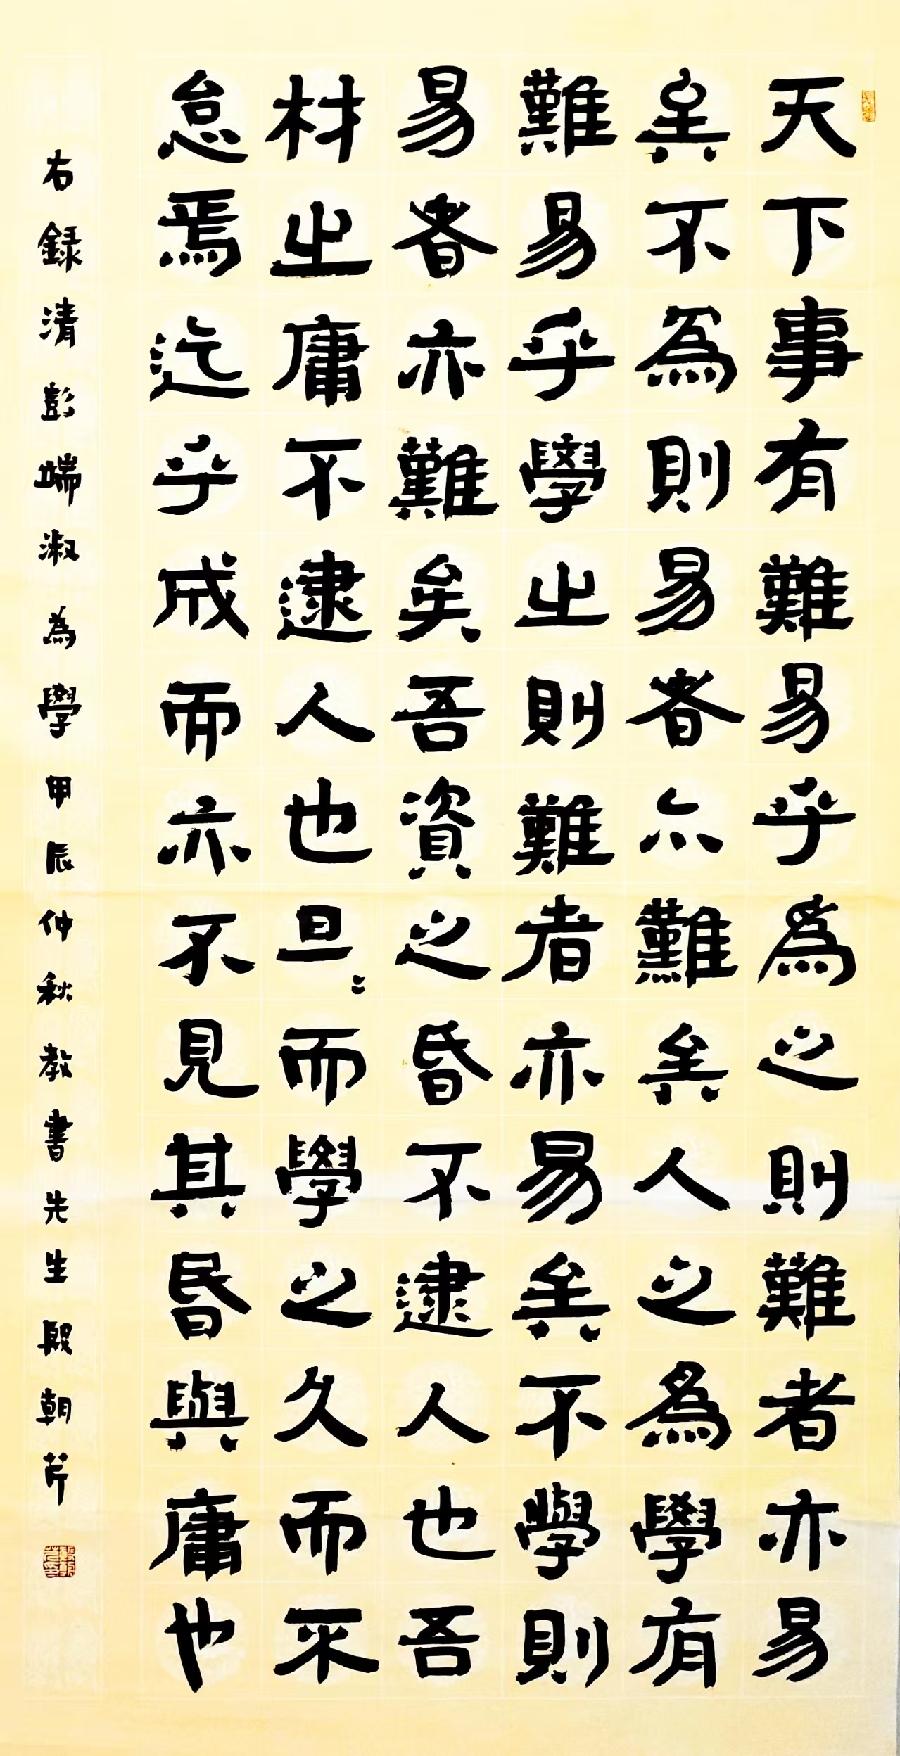 天下事有難易乎為之則難者亦易
矣不為則易者亦難矣人之為學有
難易乎學之則難者亦易矣不學則
易者亦難矣吾資之昏不逮人也吾
材之庸不逮人也旦〻而學之久而不
怠焉迄乎成而亦不見其昏與庸也
右録清彭端淑為學甲辰仲秋教書先生殷朝芹